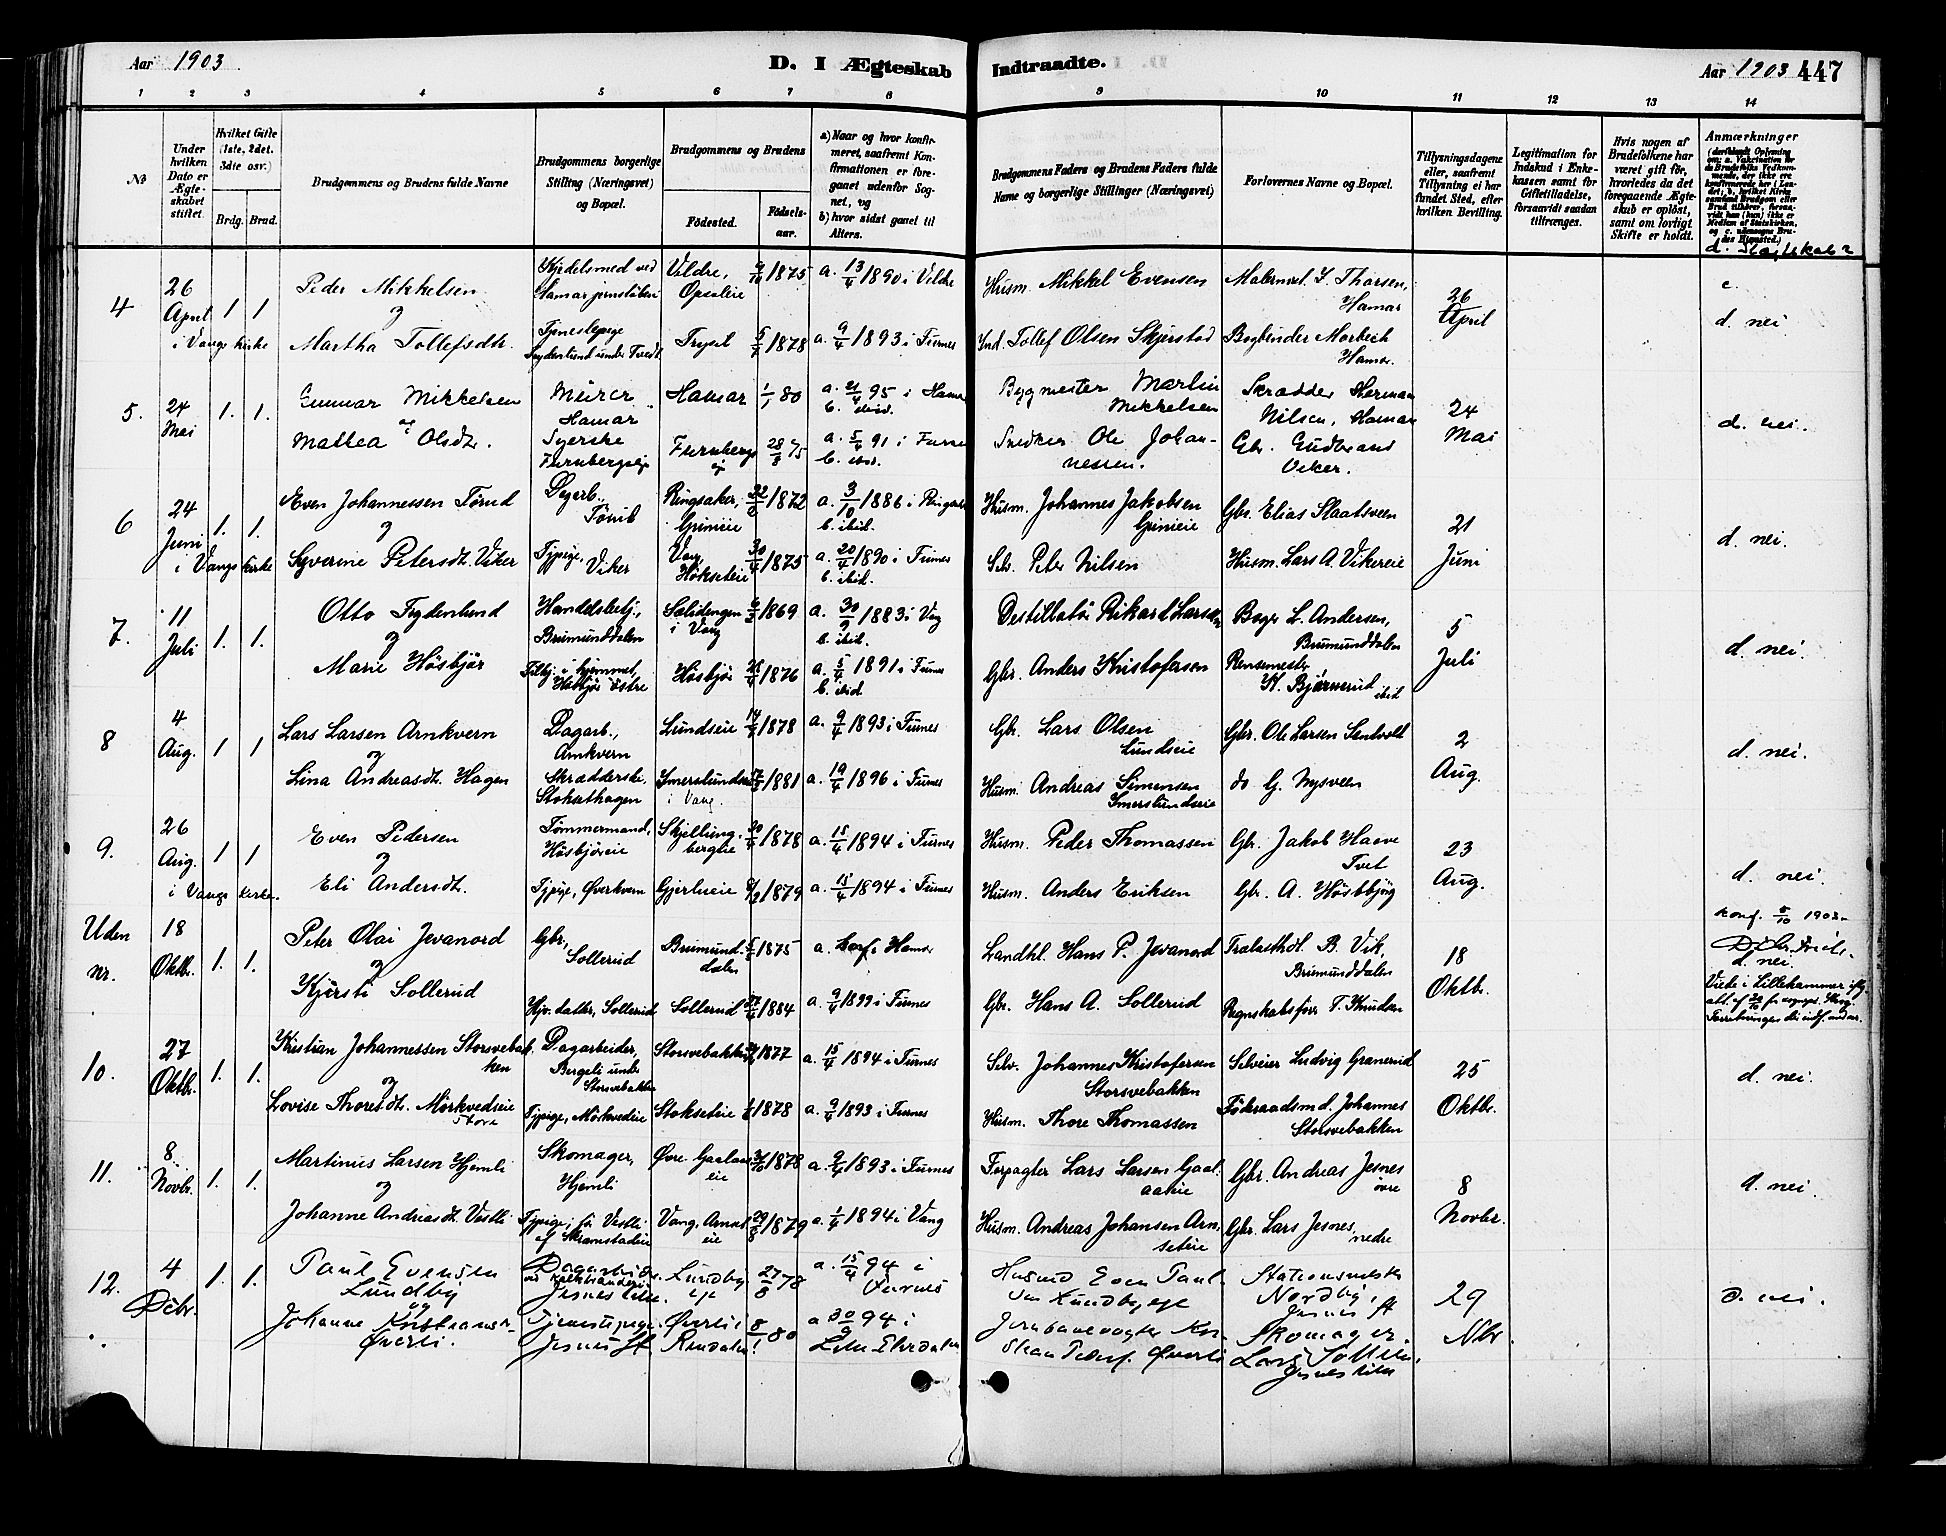 Aar 1903
D. I Ægteskab Indtraadte.
Aar 1903 447
1 2 3 4 5 6 7 8 9 10 11 12 13 14
No
Under hvilken Dato er Ægteskabet stiftet.
Hvilket Gifte (1ste, 2det, 3die osv.)
Brdg. Brud.
Brudgommens og Brudens fulde Navne
Brudgommens borgerlige Stilling (Næringsvei) og Bopæl.
Brudgommens og Brudens
Fødested.
Fødselsaar.
a) Naar og hvor konfirmeret, saafremt Konfirmationen er foregaaet udenfor Sognet, og
b) hvor sidst gaaet til Alters.
Brudgommens Faders og Brudens Faders fulde Navne og borgerlige Stillinger (Næringsvei)
Forlovernes Navne og Bopæl.
Tillysningsdagene eller, saafremt Tillysning ei har fundet Sted, efter hvilken Bevilling.
Legitimation for Indskud i Enkekassen samt for Giftetilladelse, forsaavidt saadan tiltrænges.
Hvis nogen af Brudefolkene har været gift før, hvorledes da det foregaaende Ægteskab er opløst, samt om lovligt Skifte er holdt.
Anmærkninger
4 26 April i Vangs kirke 1 1
Peder Mikkelsen
Kjedelsmed ved Hamar jernstøberi
Vildre, Opsaleie
9/10 1875
a. 13/4 1890 i Vildre
Husm. Mikkel Evensen
Malermest. S. Thorsen, Hamar
26 April
c
d. nei
og
Martha Tollefsdtr.
Trysil 5/7 1878
a. 9/4 1893 i Furnes
Ind. Tollef Olsen Skjerstad
Bogbinder Morbech Hamar
5. 24 Mai 1. 1.
Gunnar Mikkelsen
Murer Hamar
Hamar 1/1 80
a. 21/4 95 i Hamar
b. ibid.
Bygmester Martin Mikkelsen
Skrædder Herman Nilsen, Hamar
24 Mai
d. nei.
og
Mathea Olsdtr.
Syerske Furnbergseje
Furnbergs ej 28/8 75
a. 5/4 91 i Furnes
b. ibid.
Snedker Ole Johannessen.
Gbr. Gudbrand Veker.
6 24 Juni i Vangs kirke 1. 1.
Even Johannessen Tørud
Dagarb., Tørud
Ringsaker, Grimeie
22/6 1872
a. 3/10 1886 i Ringsaker
b. ibid.
Husm. Johannes Jakobsen Grimeie
Gbr. Elias Slaatsveen
21 Juni
d. nei.
og
Syverine Petersdt. Viker
Tjpige, Viker
Vang Høkseteie 30/4 1875
a. 20/4 1890 i Furnes
b. ibid.
Selv. Peter Nilsen
Husm. Lars A. Vikereie
7. 11 Juli 1. 1.
Otto Frydenlund
Handelsbetj., Brumunddalen
Solidengen i Vang
6/3 1869
a. 30/9 1883 i Vang
b. ibid.
Destillatør Rikard Larsen
Bager L. Andersen, Brumunddalen
5 Juli
d. nei.
og
Marie Høsbjør
i hjemmet, Høsbjør østre
Høsbjør 1876
a. 5/4 1891 i Furnes
b. ibid.
Gbr. Anders Kristofersen
Rensemester K. Bjørnerud ibid
8 4 Aug. 1 1
Lars Larsen Arnkvern
Dagarb., Arnkvern
Lundseie 14/7 1878
a. 9/4 1893 i Furnes
Gbr. Lars Olsen Lundseie
Gbr. Ole Larsen Sandvold
2 Aug.
d. nei.
og
Lina Andreasdt. Hagen
Skrædderske, Stoksethagen
Imerslundseie i Vang 1881
a. 19/4 1896 i Furnes
Husm. Andreas Simensen Imerslundseie
do G. Nysveen
9. 26 Aug. i Vangs kirke. 1 1
Even Pedersen
Tømmermand, Høsbjøreie
Skjellungbergeie 20/4 1878
a. 15/4 1894 i Furnes
Husm. Peder Thomassen
Gbr. Jakob Haave Tvet
23 Aug.
d. nei.
og
Eli Andersdt.
Tjpige, Øverkvern
Gjerlueie 1879
a. 15/4 1894 i Furnes
Husm. Anders Eriksen
Gbr. A. Høsbjøg
Uden nr. 18 Oktbr. 1. 1.
Peter Olai Jevanord
Gbr, Sollerud
Brumunddalen 1875
a. konf. i Hamar
Landhl. Hans P. Jevanord
Trælasthdl. B. Vik, Brumunddalen
18 Oktbr.
konf. 5/10 1902
d. nei
og
Kjersti Sollerud
Hjv. datter, Sollerud
Sollerud 1884
a. 9/4 1899 i Furnes
Gbr. Hans A. Sollerud
Regnskabsfør T. Knudsen
Viede i Lillehammer iflg. att. af
10. 27 Oktbr. 1. 1.
Kristian Johannessen Storsvebakken
Dagarbeider, Bergeli under Storsvebakken
Storsvebakken 1877
a. 15/4 1894 i Furnes
Selv. Johannes Kristofersen Storsvebakken
Selveier Ludvig Granerud
25 Oktbr.
d. nei.
og
Lovise Thoresdt. Mørkvedseie Store
Tjpige, Mørkvedeie
Stokseteie 1878
a. 9/4 1893 i Furnes
Husm. Thore Thomassen
Føderaadsmd. Johannes Storsvebakken
11. 8. Novbr. 1. 1.
Martinus Larsen Hjemli
Skomager, Hjemli
Øvre Gaalaaseie 31/10 1878
a. 9/4 1893 i Furnes
Forpagter Lars Larsen Gaalaaseie
Gbr. Andreas Jesnes øvre
8 Novbr.
d. nei.
og
Johanne Andreasdt. Vestli
Tjpige, fr. Vestli af Skramstadeie
Vang, Arnseteie 29/8 1879
a. 1/4 1894 i Vang
Husm. Andreas Johansen Arnseteie
Gbr. Lars Jesnes, nedre
12. 4 Dcbr. 1. 1.
Paul Evensen Lundby
Lundby eje 27/8 78
a. 15/4 94 i Furnes
Husmd Even Paulsen Lundbyeje
Stationsmester Nordby, Jesnes st
29 Nbr.
d. nei.
og
Johanne Kristiansen Øverli.
Tjenestepige, Jesnes st.
Øverli Rendalen 8/1 80
a 30/9 94 i Lille Elvedalen
Jernbanevogter Kristian Peders. Øverli
Skomager Lars